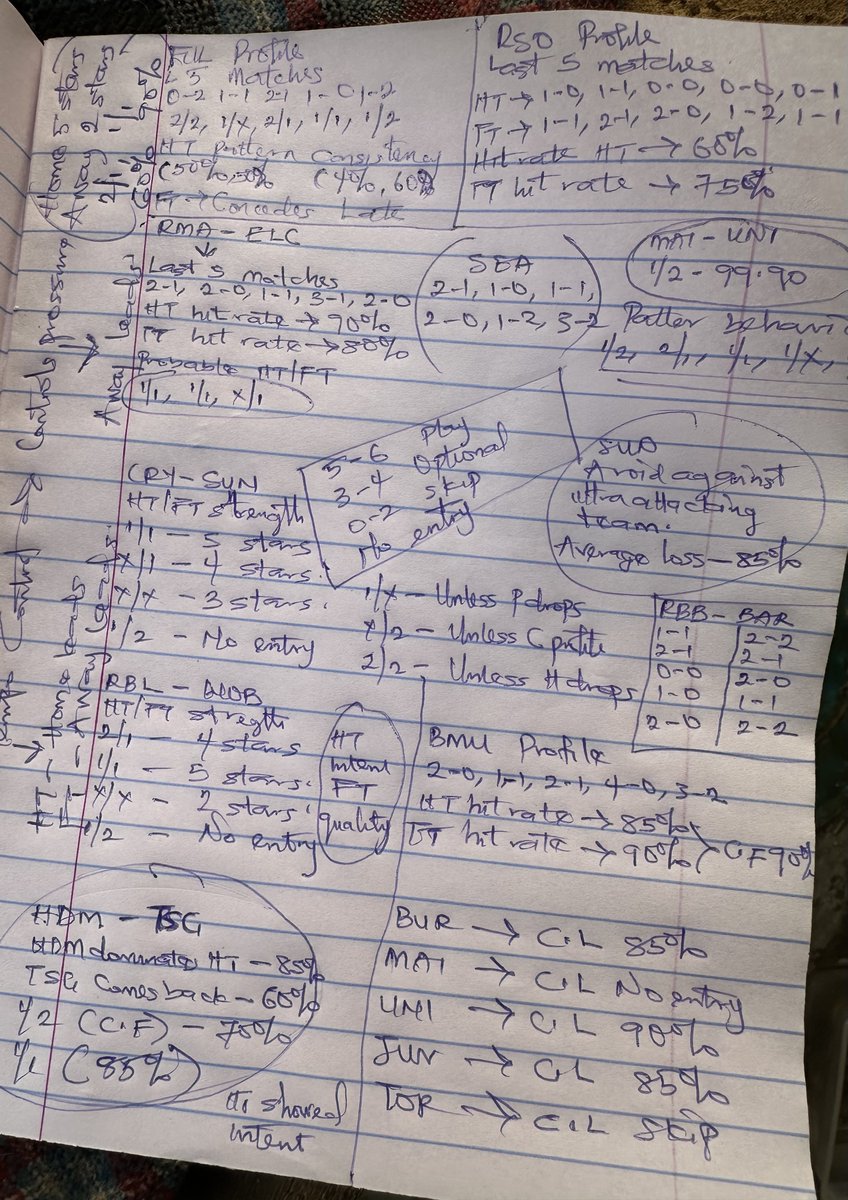 Profile
L 5 Matches
0-2 1-1 2-1 1-0 1-2
2/2, 1/X, 2/1, 1/1, 1/2
HT Pattern Consistency
(50%, 50% (40%, 60%)
FT → Concedes Late
RSO Profile
Last 5 matches.
HT → 1-0, 1-1, 0-0, 0-0, 0-1
FT → 1-1, 2-1, 2-0, 1-2, 1-1
Hit rate HT → 60%
FT hit rate → 75%
Home 5 stars
Away 2 stars
2/1 - 1/1
60% 90%
RMA - ELC
↓
Last 5 matches
2-1, 2-0, 1-1, 3-1, 2-0
HT hit rate → 90%
FT hit rate → 80%
Probable HT/FT
1/1, 1/1, X/1
SEA
2-1, 1-0, 1-1,
2-0, 1-2, 3-2
MAI - UNI
1/2 - 99.90
Patter behavi
1/2, 2/1, 1/1, 1/X,
→ Controls Pressure
Away leads:
5-6 Play
3-4 Optional
0-2 Skip
No entry
SUD
Avoid against
ultra attacking
team.
Average loss - 85%
CRY - SUN
HT/FT strength
1/1 - 5 stars
X/1 - 4 stars.
X/X - 3 stars.
1/2 - No entry
1/X - Unless P drops
X/2 - Unless C profile
2/2 - Unless H drops
RBB - BAR
1-1 2-2
2-1 2-1
0-0 2-0
1-0 1-1
2-0 2-2
Control
HT - Home leads
FT - Away leads.
RBL - WOB
HT/FT stregth
2/1 - 4 stars
1/1 - 5 stars.
X/X - 2 stars.
1/2 - No entry
HT
intent
FT
quality
BMU Profile
2-0, 1-1, 2-1, 4-0, 3-2
HT hit rate → 85%
FT hit rate → 90% > C.F 90%
HDM - TSG
HDM dominates HT - 85%
TSG Comes back - 60%
1/2 (C.F) - 70%
1/1 (85%)
HT showed
intent
BUR → C.L 85%
MAI → C.L No entry
UNI → C.L 90%
JUV → C.L 85%
TOR → C.L Skip